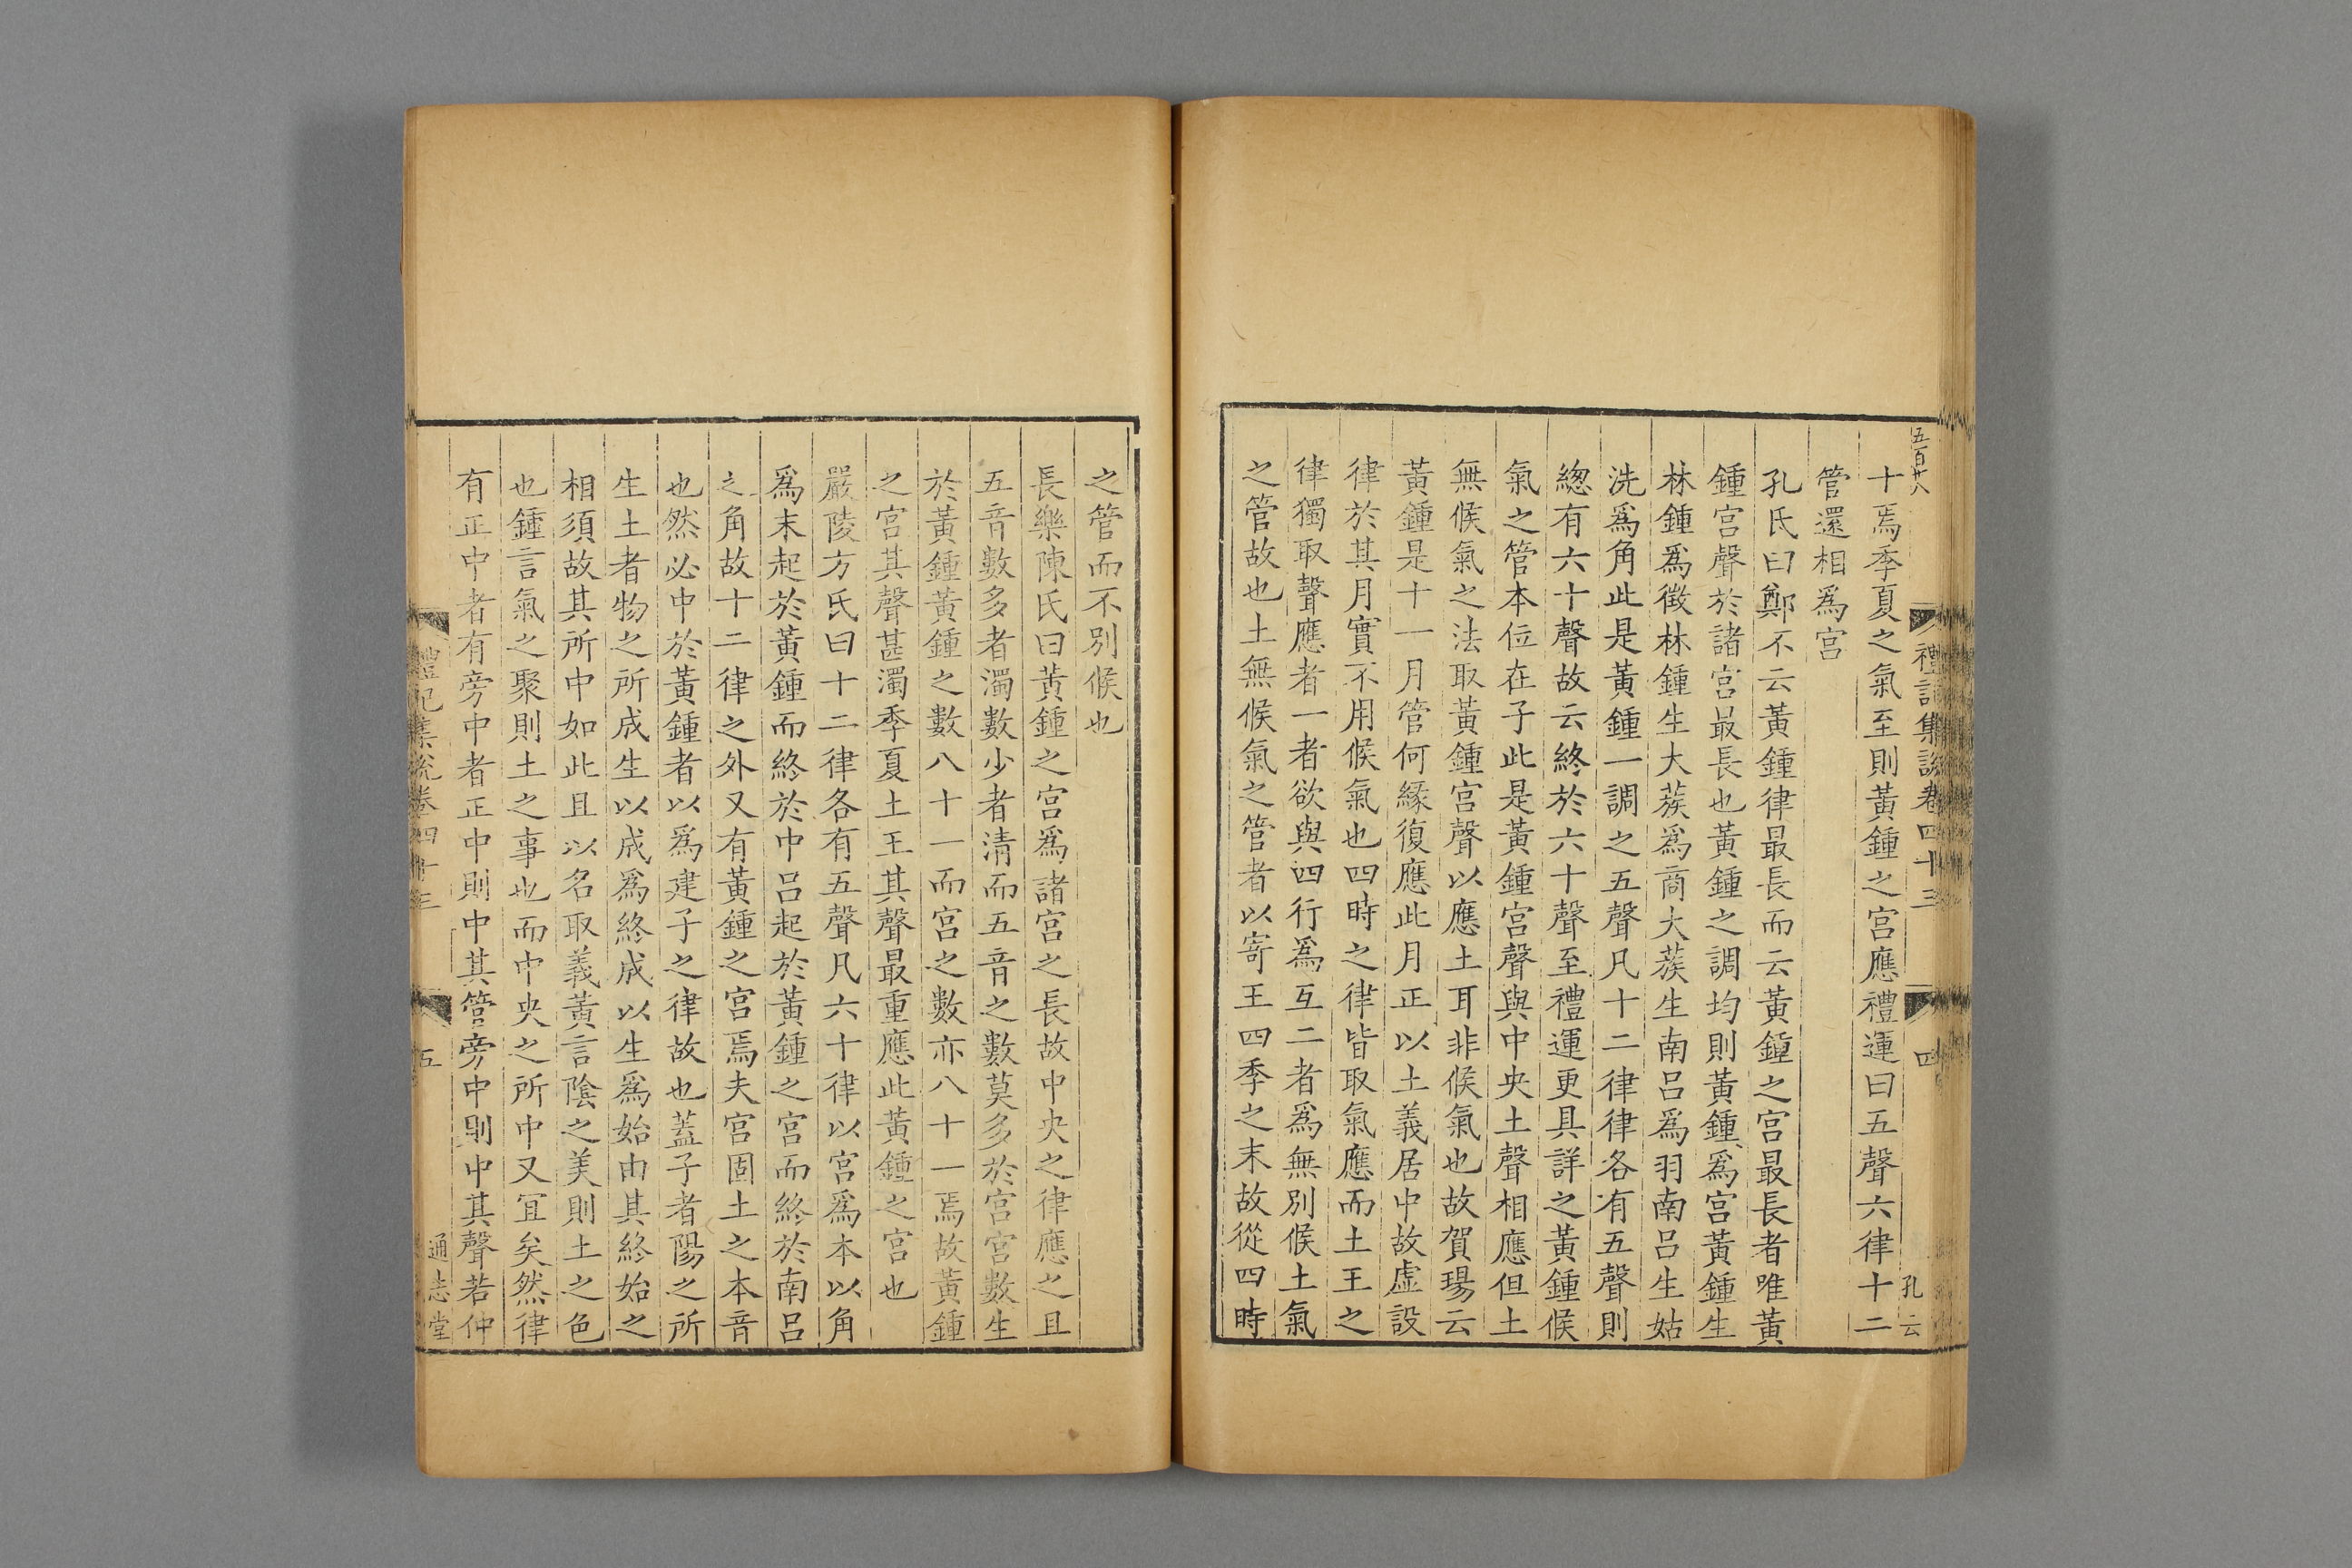 五百廿八
禮記集說卷四十三
四
孔云
十焉季夏之氣至則黃鍾之宮應禮運曰五聲六律十二
管還相爲宮
孔氏曰鄭不云黃鍾律最長而云黃鍾之宮最長者唯黃
鍾宮聲於諸宮最長也黃鍾之調均則黃鍾爲宮黃鍾生
林鍾爲徵林鍾生大蔟爲商大蔟生南呂爲羽南呂生姑
洗爲角此是黃鍾一調之五聲凡十二律律各有五聲則
緫有六十聲故云終於六十聲至禮運更具詳之黃鍾候
氣之管本位在子此是黃鍾宮聲與中央土聲相應但土
無候氣之法取黃鍾宮聲以應土耳非候氣也故賀瑒云
黃鍾是十一月管何緣復應此月正以土義居中故虛設
律於其月實不用候氣也四時之律皆取氣應而土王之
律獨取聲應者一者欲與四行爲互二者爲無別候土氣
之管故也土無候氣之管者以寄王四季之末故從四時
之管而不別候也
長樂陳氏曰黃鍾之宮爲諸宮之長故中央之律應之且
五音數多者濁數少者清而五音之數莫多於宮宮數生
於黃鍾黃鍾之數八十一而宮之數亦八十一焉故黃鍾
之宮其聲甚濁季夏土王其聲最重應此黃鍾之宮也
嚴陵方氏曰十二律各有五聲凡六十律以宮爲本以角
爲末起於黃鍾而終於中呂起於黃鍾之宮而終於南呂
之角故十二律之外又有黃鍾之宮焉夫宮固土之本音
也然必中於黃鍾者以爲建子之律故也蓋子者陽之所
生土者物之所成生以成爲終成以生爲始由其終始之
相須故其所中如此且以名取義黃言陰之美則土之色
也鍾言氣之聚則土之事也而中央之所中又宜矣然律
有正中者有旁中者正中則中其管旁中則中其聲若仲
禮記集說卷四十三
五
通志堂